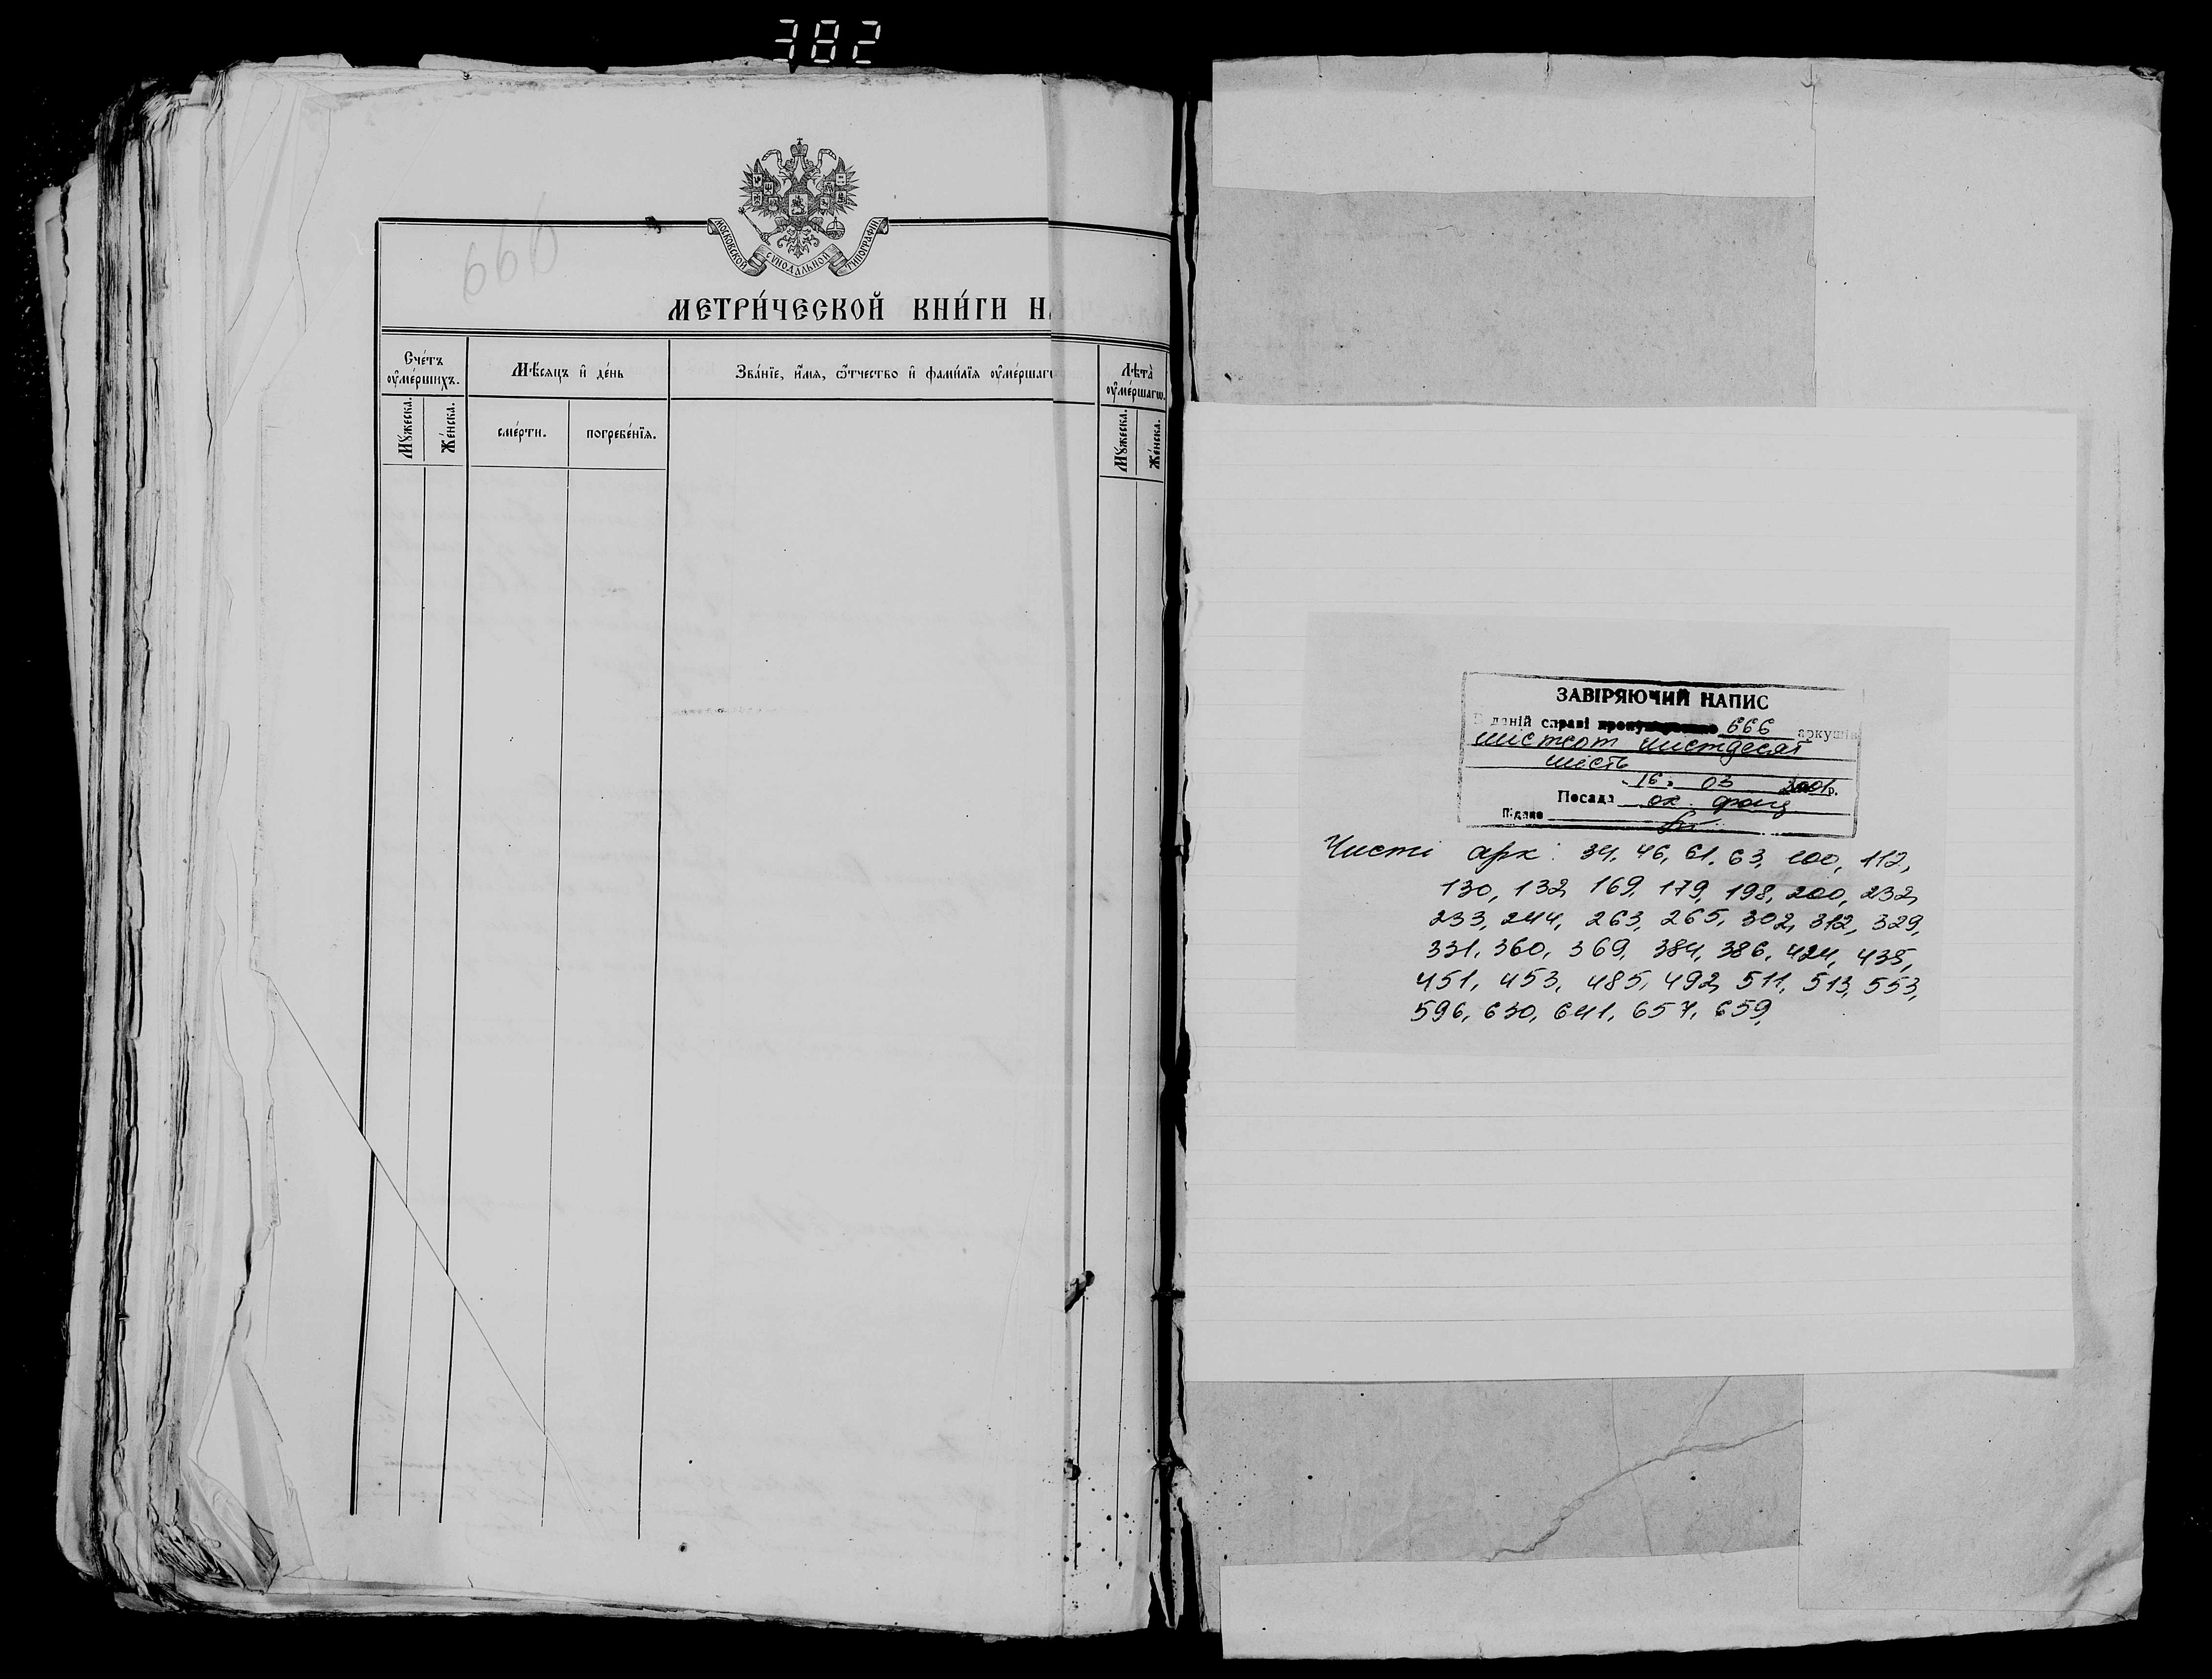 382
666
МОСКОВСКОЙ СѴНОДАЛЬНОЙ ТИПОГРАФІИ.
МЕТРИ́ЧЕСКОЙ КНИ́ГИ Н
Сче́тъ ᲂу҆ме́ршихъ.
Мꙋ́жеска.
Же́нска.
Мѣ́сяцъ и҆ де́нь
сме́рти.
погребе́нїѧ.
Зва́нїе, и҆́мѧ, ѻ҆́тчество и҆ фами́лїѧ ᲂу҆ме́ршагѡ
Лѣ́та ᲂу҆ме́ршагѡ.
Мꙋ́жеска.
Же́нска.
ЗАВІРЯЮЧИЙ НАПИС
В даній справі 666 аркушів
шістсот шістдесят
шість
16 03 2001р.
Посада ох. фонд
Підпис
Чисті арк: 34, 46, 61, 63, 100, 112,
130, 132, 169, 179, 198, 200, 232,
233, 244, 263, 265, 302, 312, 329,
331, 360, 369, 384, 386, 424, 435,
451, 453, 485, 492, 511, 513, 553,
596, 630, 641, 657, 659,